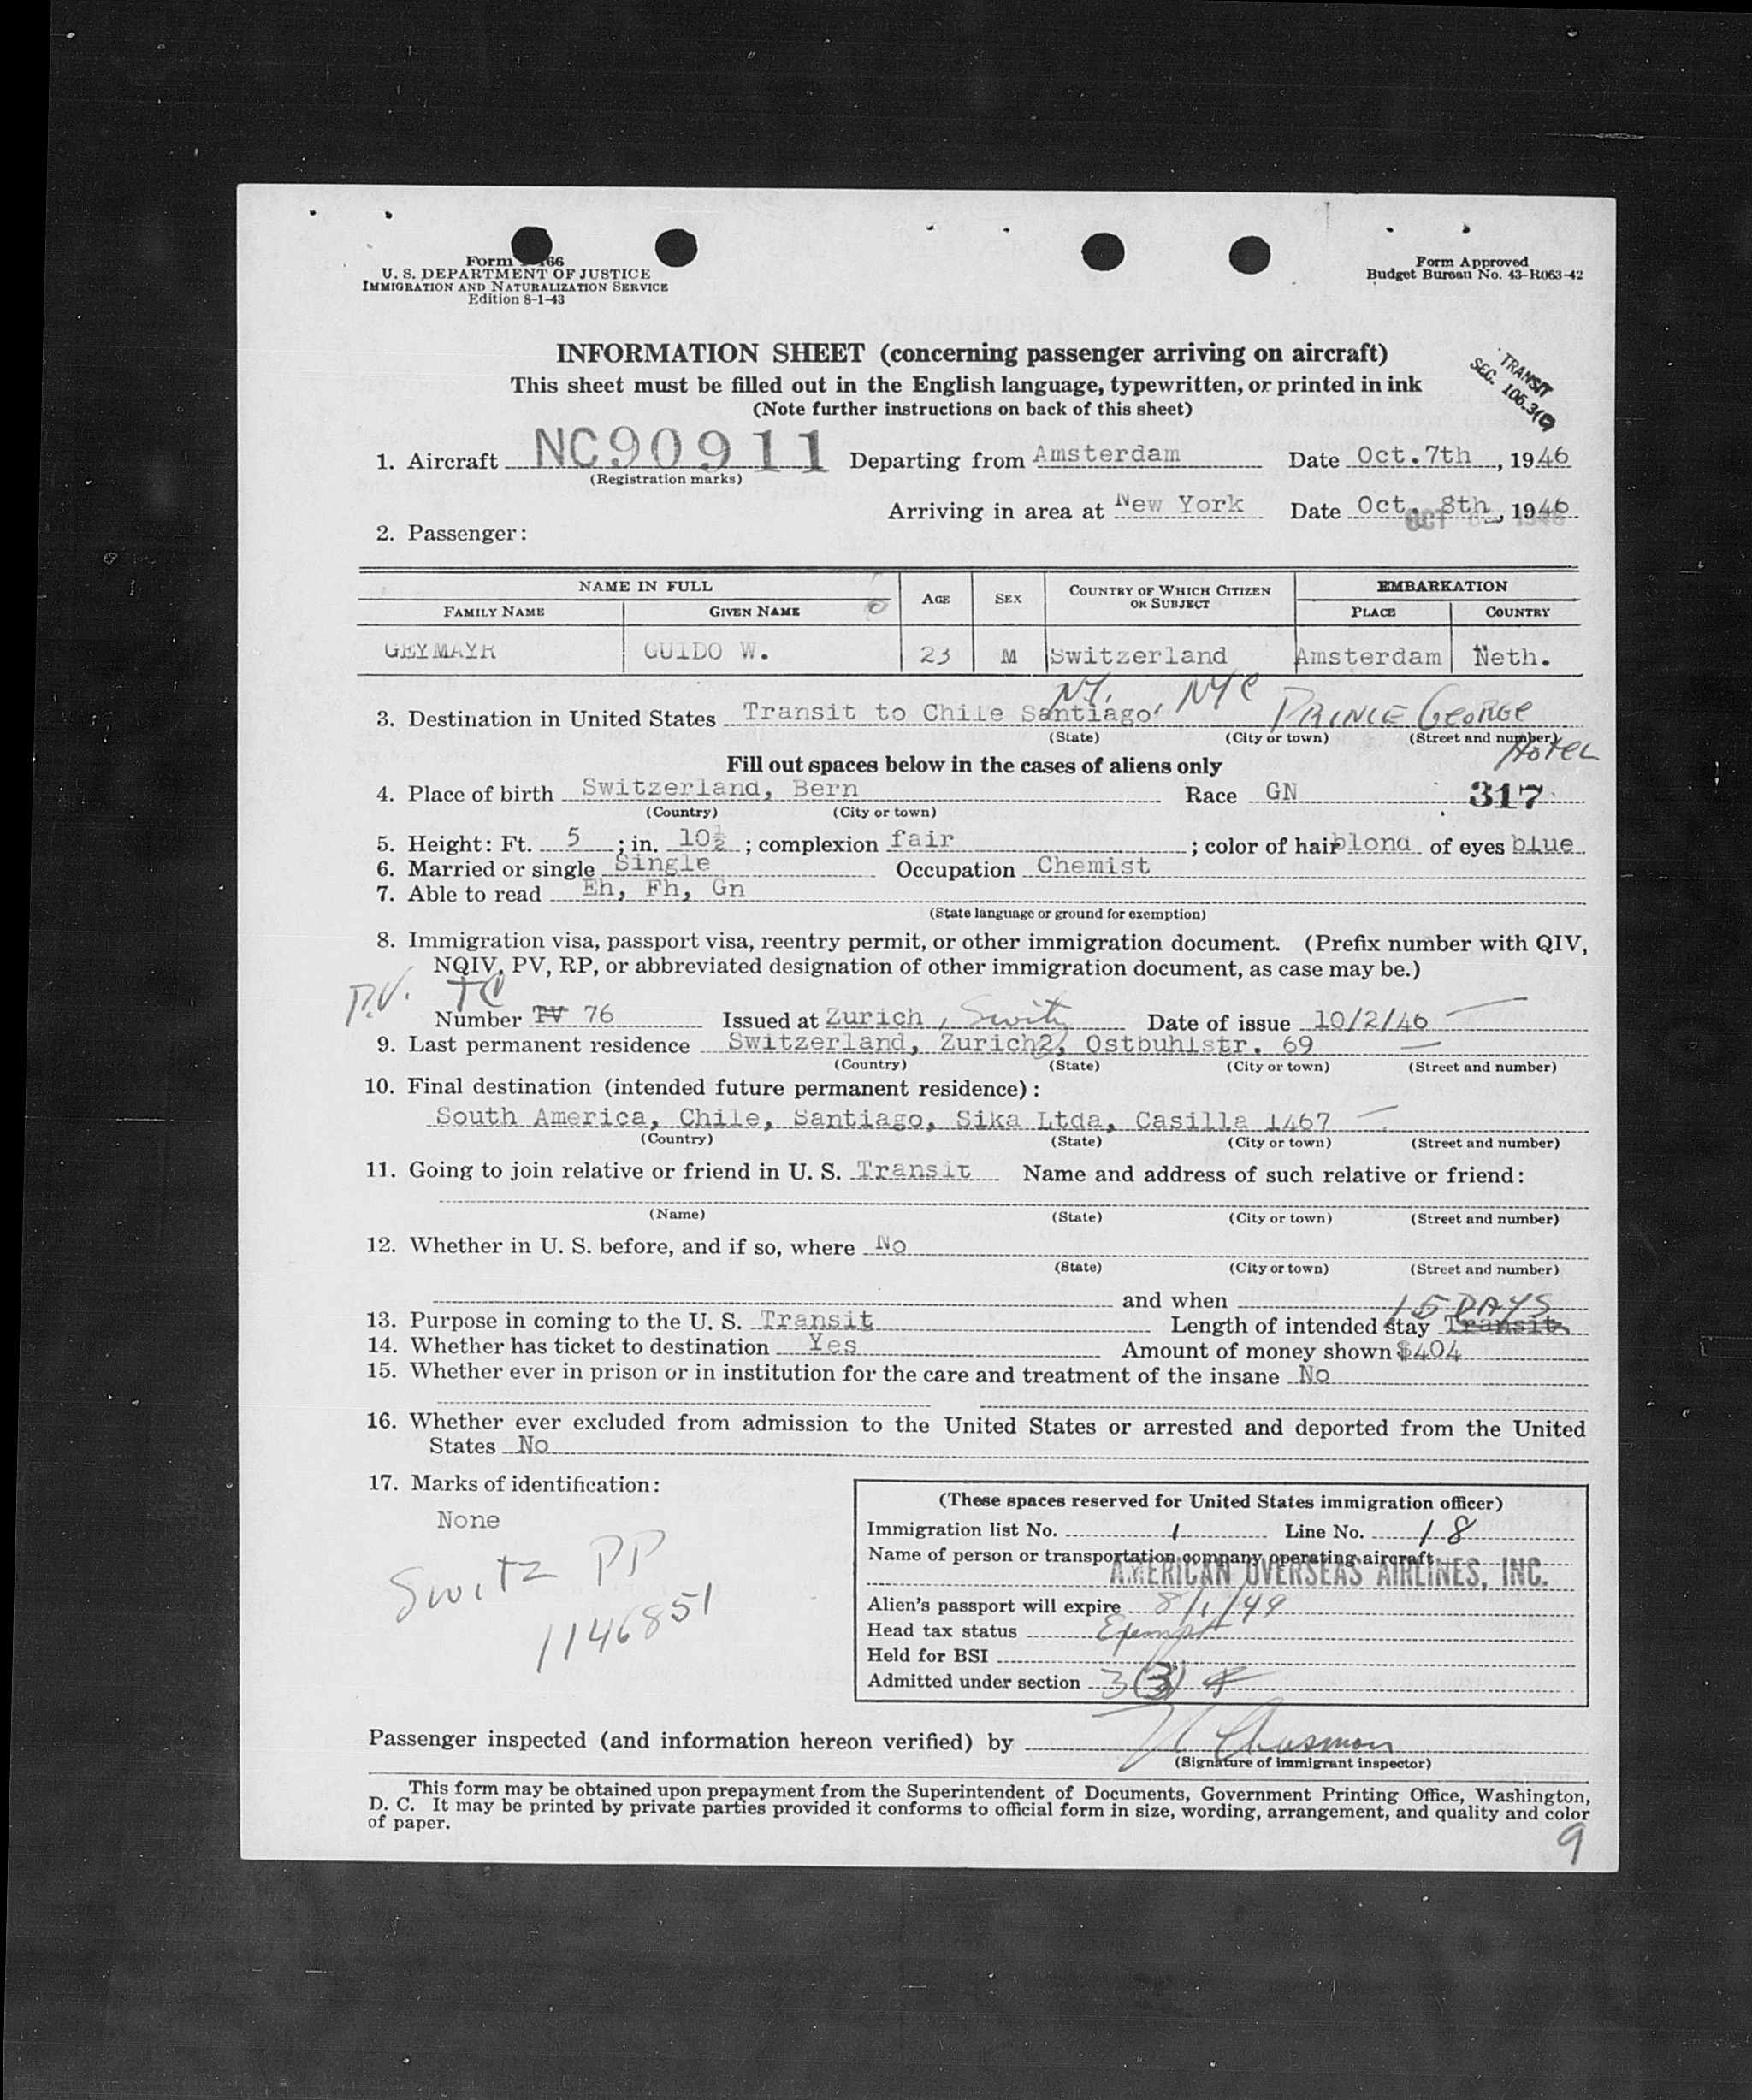 Form 66
U. S. DEPARTMENT OF JUSTICE
IMMIGRATION AND NATURALIZATION SERVICE
Edition 8-1-43
Form Approved
Budget Bureau No. 43-R063-42
INFORMATION SHEET (concerning passenger arriving on aircraft)
This sheet must be filled out in the English language, typewritten, or printed in ink
(Note further instructions on back of this sheet)
TRANSIT
SEC. 106.3(
1. Aircraft NC90911 Departing from Amsterdam Date Oct.7th, 1946
(Registration marks)
Arriving in area at New York Date Oct. 8th, 1946
2. Passenger:
NAME IN FULL AGE SEX COUNTRY OF WHICH CITIZEN OR SUBJECT EMBARKATION
FAMILY NAME GIVEN NAME PLACE COUNTRY
GEYMAYR GUIDO W. 23 M Switzerland Amsterdam Neth.
NY. NYC PRINCE GEORGE
3. Destination in United States Transit to Chile Santiago
(State) (City or town) (Street and number)
HOTEL
Fill out spaces below in the cases of aliens only
4. Place of birth Switzerland, Bern Race GN 317
(Country) (City or town)
5. Height: Ft. 5 ; in. 10½ ; complexion fair ; color of hair blond of eyes blue
6. Married or single Single Occupation Chemist
7. Able to read Eh, Fh, Gn
(State language or ground for exemption)
8. Immigration visa, passport visa, reentry permit, or other immigration document. (Prefix number with QIV,
NQIV, PV, RP, or abbreviated designation of other immigration document, as case may be.)
P.V. TC
Number PV 76 Issued at Zurich, Switz Date of issue 10/2/46
9. Last permanent residence Switzerland, Zurich2, Ostbuhlstr. 69
(Country) (State) (City or town) (Street and number)
10. Final destination (intended future permanent residence):
South America, Chile, Santiago, Sika Ltda, Casilla 1467
(Country) (State) (City or town) (Street and number)
11. Going to join relative or friend in U. S. Transit Name and address of such relative or friend:
(Name) (State) (City or town) (Street and number)
12. Whether in U. S. before, and if so, where No
(State) (City or town) (Street and number)
and when
15 DAYS
13. Purpose in coming to the U. S. Transit Length of intended stay Transit
14. Whether has ticket to destination Yes Amount of money shown $404
15. Whether ever in prison or in institution for the care and treatment of the insane No
16. Whether ever excluded from admission to the United States or arrested and deported from the United
States No
17. Marks of identification:
None
Switz PP
1146851
(These spaces reserved for United States immigration officer)
Immigration list No. 1 Line No. 18
Name of person or transportation company operating aircraft
AMERICAN OVERSEAS AIRLINES, INC.
Alien's passport will expire 8/1/49
Head tax status Exempt
Held for BSI
Admitted under section 3(3)
Passenger inspected (and information hereon verified) by
(Signature of immigrant inspector)
This form may be obtained upon prepayment from the Superintendent of Documents, Government Printing Office, Washington,
D. C. It may be printed by private parties provided it conforms to official form in size, wording, arrangement, and quality and color
of paper.
9